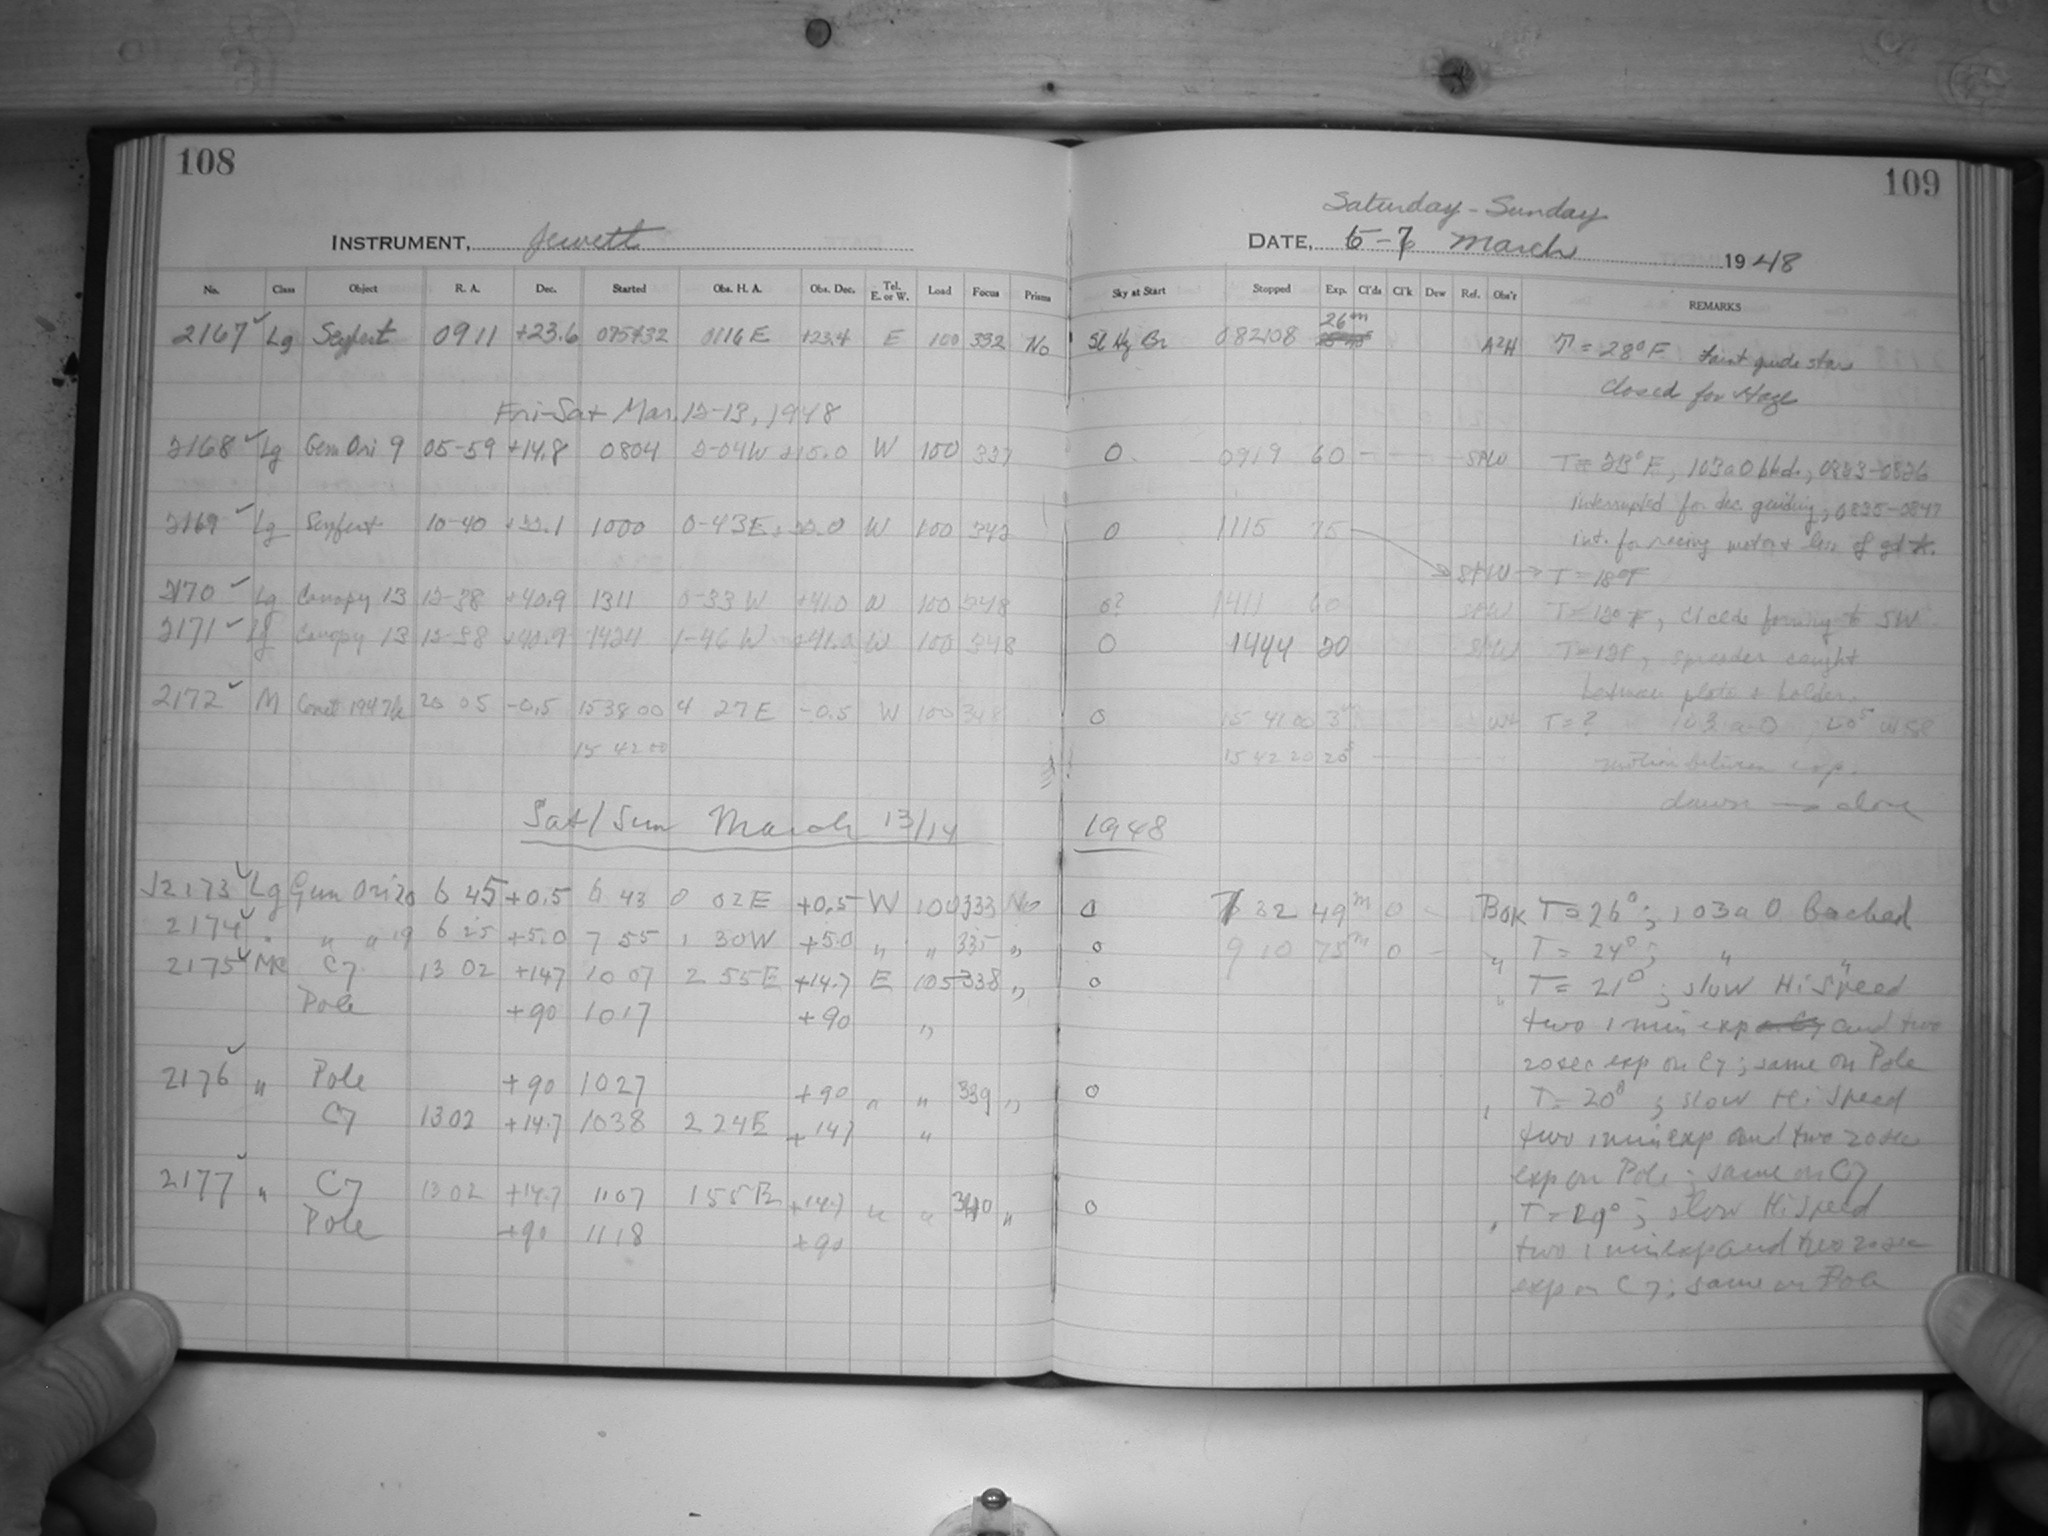 108
109
Saturday - Sunday
INSTRUMENT, Jewett
DATE, 6-7 March 1948
No. Class Object R. A. Dec. Started Obs. H. A. Obs. Dec. Tel. E. or W. Load Focus Prisms Sky at Start Stopped Exp. Cl'ds Cl'k Dew Ref. Obs'r REMARKS
2167 Lg Seyfert 0911 +23.6 075432 0116 E +23.4 E 100 332 No Sl Hz Br 082108 26m A2H T = 28°F Faint guide star
closed for Haze
Fri-Sat Mar. 12-13, 1948
2168 Lg Gem Ori 9 05-59 +14.8 0804 2-04W +15.0 W 100 337 0 0919 60 - - - - SPW T = 23°F, 103aO bkd., 0823-0826
interrupted for dec. guiding, 0835-0847
2169 Lg Seyfert 10-40 +22.1 1000 0-43E +22.0 W 100 342 0 1115 75 int. for racing motor & loss of gd *.
SPW → T = 18°F
2170 Lg Canopy 13 12-38 +40.9 1311 0-33 W +41.0 W 100 348 0? 1411 60 SPW T = 12°F, clouds forming to SW
2171 Lg Canopy 13 12-38 +40.9 1424 1-46 W +41.0 W 100 348 0 1444 20 SPW T = 12F, spreader caught
between plate & holder.
2172 M Comet 1947k 20 05 -0.5 153800 4 27 E -0.5 W 100 348 0 15 41 00 3m T = ? 103 a-O
15 42 00 15 42 20 20s motion between exp.
dawn → close
Sat/Sun March 13/14 1948
J2173 Lg Gem Ori 20 6 45 +0.5 6 43 0 02 E +0.5 W 100 333 No 0 7 32 49m 0 - Bok T = 26°; 103a O backed
2174 " " " 19 6 25 +5.0 7 55 1 30W +5.0 " " 335 " 0 9 10 75m 0 - " T = 24°; " "
2175 Mc C7 13 02 +14.7 10 07 2 55 E +14.7 E 105 338 " 0 " T = 21°; slow Hi Speed
Pole +90 1017 +90 " two 1 min exp and two
20 sec exp on C7; same on Pole
2176 " Pole +90 1027 +90 " " 339 " 0 " T = 20°; slow Hi Speed
C7 1302 +14.7 1038 2 24E +14.7 " two 1 min exp and two 20 sec
exp on Pole; same on C7
2177 " C7 1302 +14.7 1107 1 55 E +14.7 " " 340 " 0 " T = 19°; slow Hi Speed
Pole +90 1118 +90 two 1 min exp and two 20 sec
exp on C7; same on Pole